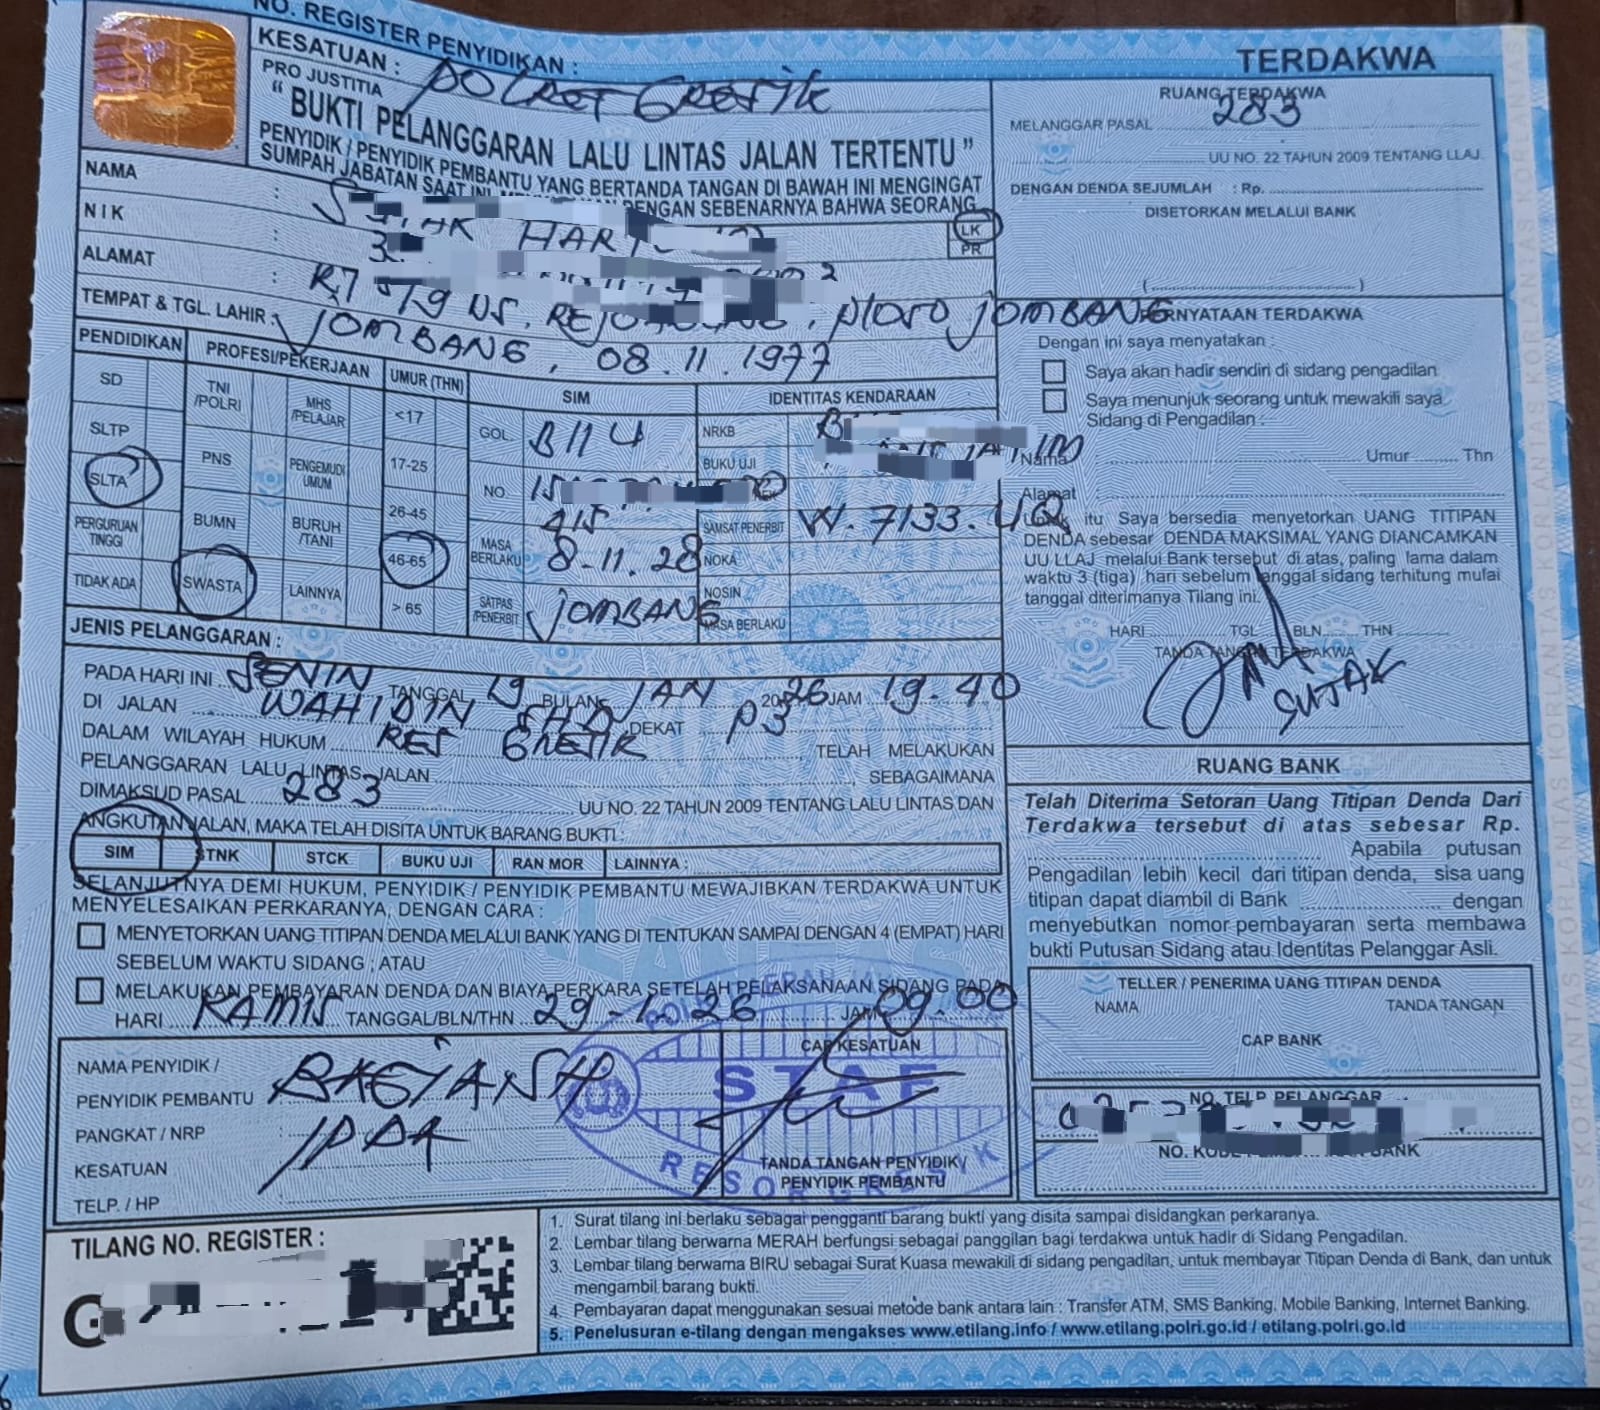 NO. REGISTER PENYIDIKAN :
KESATUAN : POLRES GRESIK
PRO JUSTITIA
"BUKTI PELANGGARAN LALU LINTAS JALAN TERTENTU"
PENYIDIK / PENYIDIK PEMBANTU YANG BERTANDA TANGAN DI BAWAH INI MENGINGAT
SUMPAH JABATAN SAAT INI DENGAN SEBENARNYA BAHWA SEORANG
NAMA :
LK
PR
NIK :
ALAMAT : RT DS. PLOSO JOMBANG
TEMPAT & TGL. LAHIR : JOMBANG, 08.11.1977
PENDIDIKAN
SD
SLTP
SLTA
PERGURUAN TINGGI
TIDAK ADA
PROFESI/PEKERJAAN
TNI /POLRI
MHS /PELAJAR
PNS
PENGEMUDI UMUM
BUMN
BURUH /TANI
SWASTA
LAINNYA
UMUR (THN)
<17
17-25
26-45
46-65
> 65
SIM
GOL. B II U
NO.
MASA BERLAKU 8-11.28
SATPAS /PENERBIT JOMBANG
IDENTITAS KENDARAAN
NRKB
BUKU UJI
SAMSAT PENERBIT W. 7133. UQ
NOKA
NOSIN
MASA BERLAKU
JENIS PELANGGARAN :
PADA HARI INI SENIN TANGGAL 19 BULAN JAN 2026 JAM 19.40
DI JALAN WAHIDIN SHD DEKAT P3
DALAM WILAYAH HUKUM RES GRESIK TELAH MELAKUKAN
PELANGGARAN LALU LINTAS JALAN , SEBAGAIMANA
DIMAKSUD PASAL 283 UU NO. 22 TAHUN 2009 TENTANG LALU LINTAS DAN
ANGKUTAN JALAN, MAKA TELAH DISITA UNTUK BARANG BUKTI :
SIM STNK STCK BUKU UJI RAN MOR LAINNYA :
SELANJUTNYA DEMI HUKUM, PENYIDIK / PENYIDIK PEMBANTU MEWAJIBKAN TERDAKWA UNTUK
MENYELESAIKAN PERKARANYA, DENGAN CARA :
MENYETORKAN UANG TITIPAN DENDA MELALUI BANK YANG DI TENTUKAN SAMPAI DENGAN 4 (EMPAT) HARI
SEBELUM WAKTU SIDANG ; ATAU
MELAKUKAN PEMBAYARAN DENDA DAN BIAYA PERKARA SETELAH PELAKSANAAN SIDANG PADA
HARI KAMIS TANGGAL/BLN/THN 29-1.26 JAM 09.00
NAMA PENYIDIK /
PENYIDIK PEMBANTU :
PANGKAT / NRP : IPDA
KESATUAN :
TELP. / HP :
CAP KESATUAN
STAF
RESOR GRESIK
TANDA TANGAN PENYIDIK/
PENYIDIK PEMBANTU
TILANG NO. REGISTER :
G
TERDAKWA
RUANG TERDAKWA
MELANGGAR PASAL 283
UU NO. 22 TAHUN 2009 TENTANG LLAJ
DENGAN DENDA SEJUMLAH : Rp.
DISETORKAN MELALUI BANK
( )
PERNYATAAN TERDAKWA
Dengan ini saya menyatakan :
Saya akan hadir sendiri di sidang pengadilan
Saya menunjuk seorang untuk mewakili saya
Sidang di Pengadilan :
Nama Umur Thn
Alamat
Untuk itu Saya bersedia menyetorkan UANG TITIPAN
DENDA sebesar DENDA MAKSIMAL YANG DIANCAMKAN
UU LLAJ melalui Bank tersebut di atas, paling lama dalam
waktu 3 (tiga) hari sebelum tanggal sidang terhitung mulai
tanggal diterimanya Tilang ini.
HARI TGL BLN THN
TANDA TANGAN TERDAKWA
SUJAK
RUANG BANK
Telah Diterima Setoran Uang Titipan Denda Dari
Terdakwa tersebut di atas sebesar Rp.
Apabila putusan
Pengadilan lebih kecil dari titipan denda, sisa uang
titipan dapat diambil di Bank dengan
menyebutkan nomor pembayaran serta membawa
bukti Putusan Sidang atau Identitas Pelanggar Asli.
TELLER / PENERIMA UANG TITIPAN DENDA
NAMA TANDA TANGAN
CAP BANK
NO. TELP PELANGGAR
NO. KODE BANK
1. Surat tilang ini berlaku sebagai pengganti barang bukti yang disita sampai disidangkan perkaranya.
2. Lembar tilang berwarna MERAH berfungsi sebagai panggilan bagi terdakwa untuk hadir di Sidang Pengadilan.
3. Lembar tilang berwarna BIRU sebagai Surat Kuasa mewakili di sidang pengadilan, untuk membayar Titipan Denda di Bank, dan untuk
mengambil barang bukti.
4. Pembayaran dapat menggunakan sesuai metode bank antara lain : Transfer ATM, SMS Banking, Mobile Banking, Internet Banking.
5. Penelusuran e-tilang dengan mengakses www.etilang.info / www.etilang.polri.go.id / etilang.polri.go.id